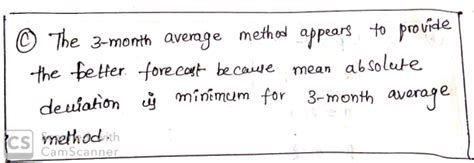 © The 3-month average method appears to provide
the better forecast because mean absolute
deviation is minimum for 3-month average
method.
CS
CamScanner